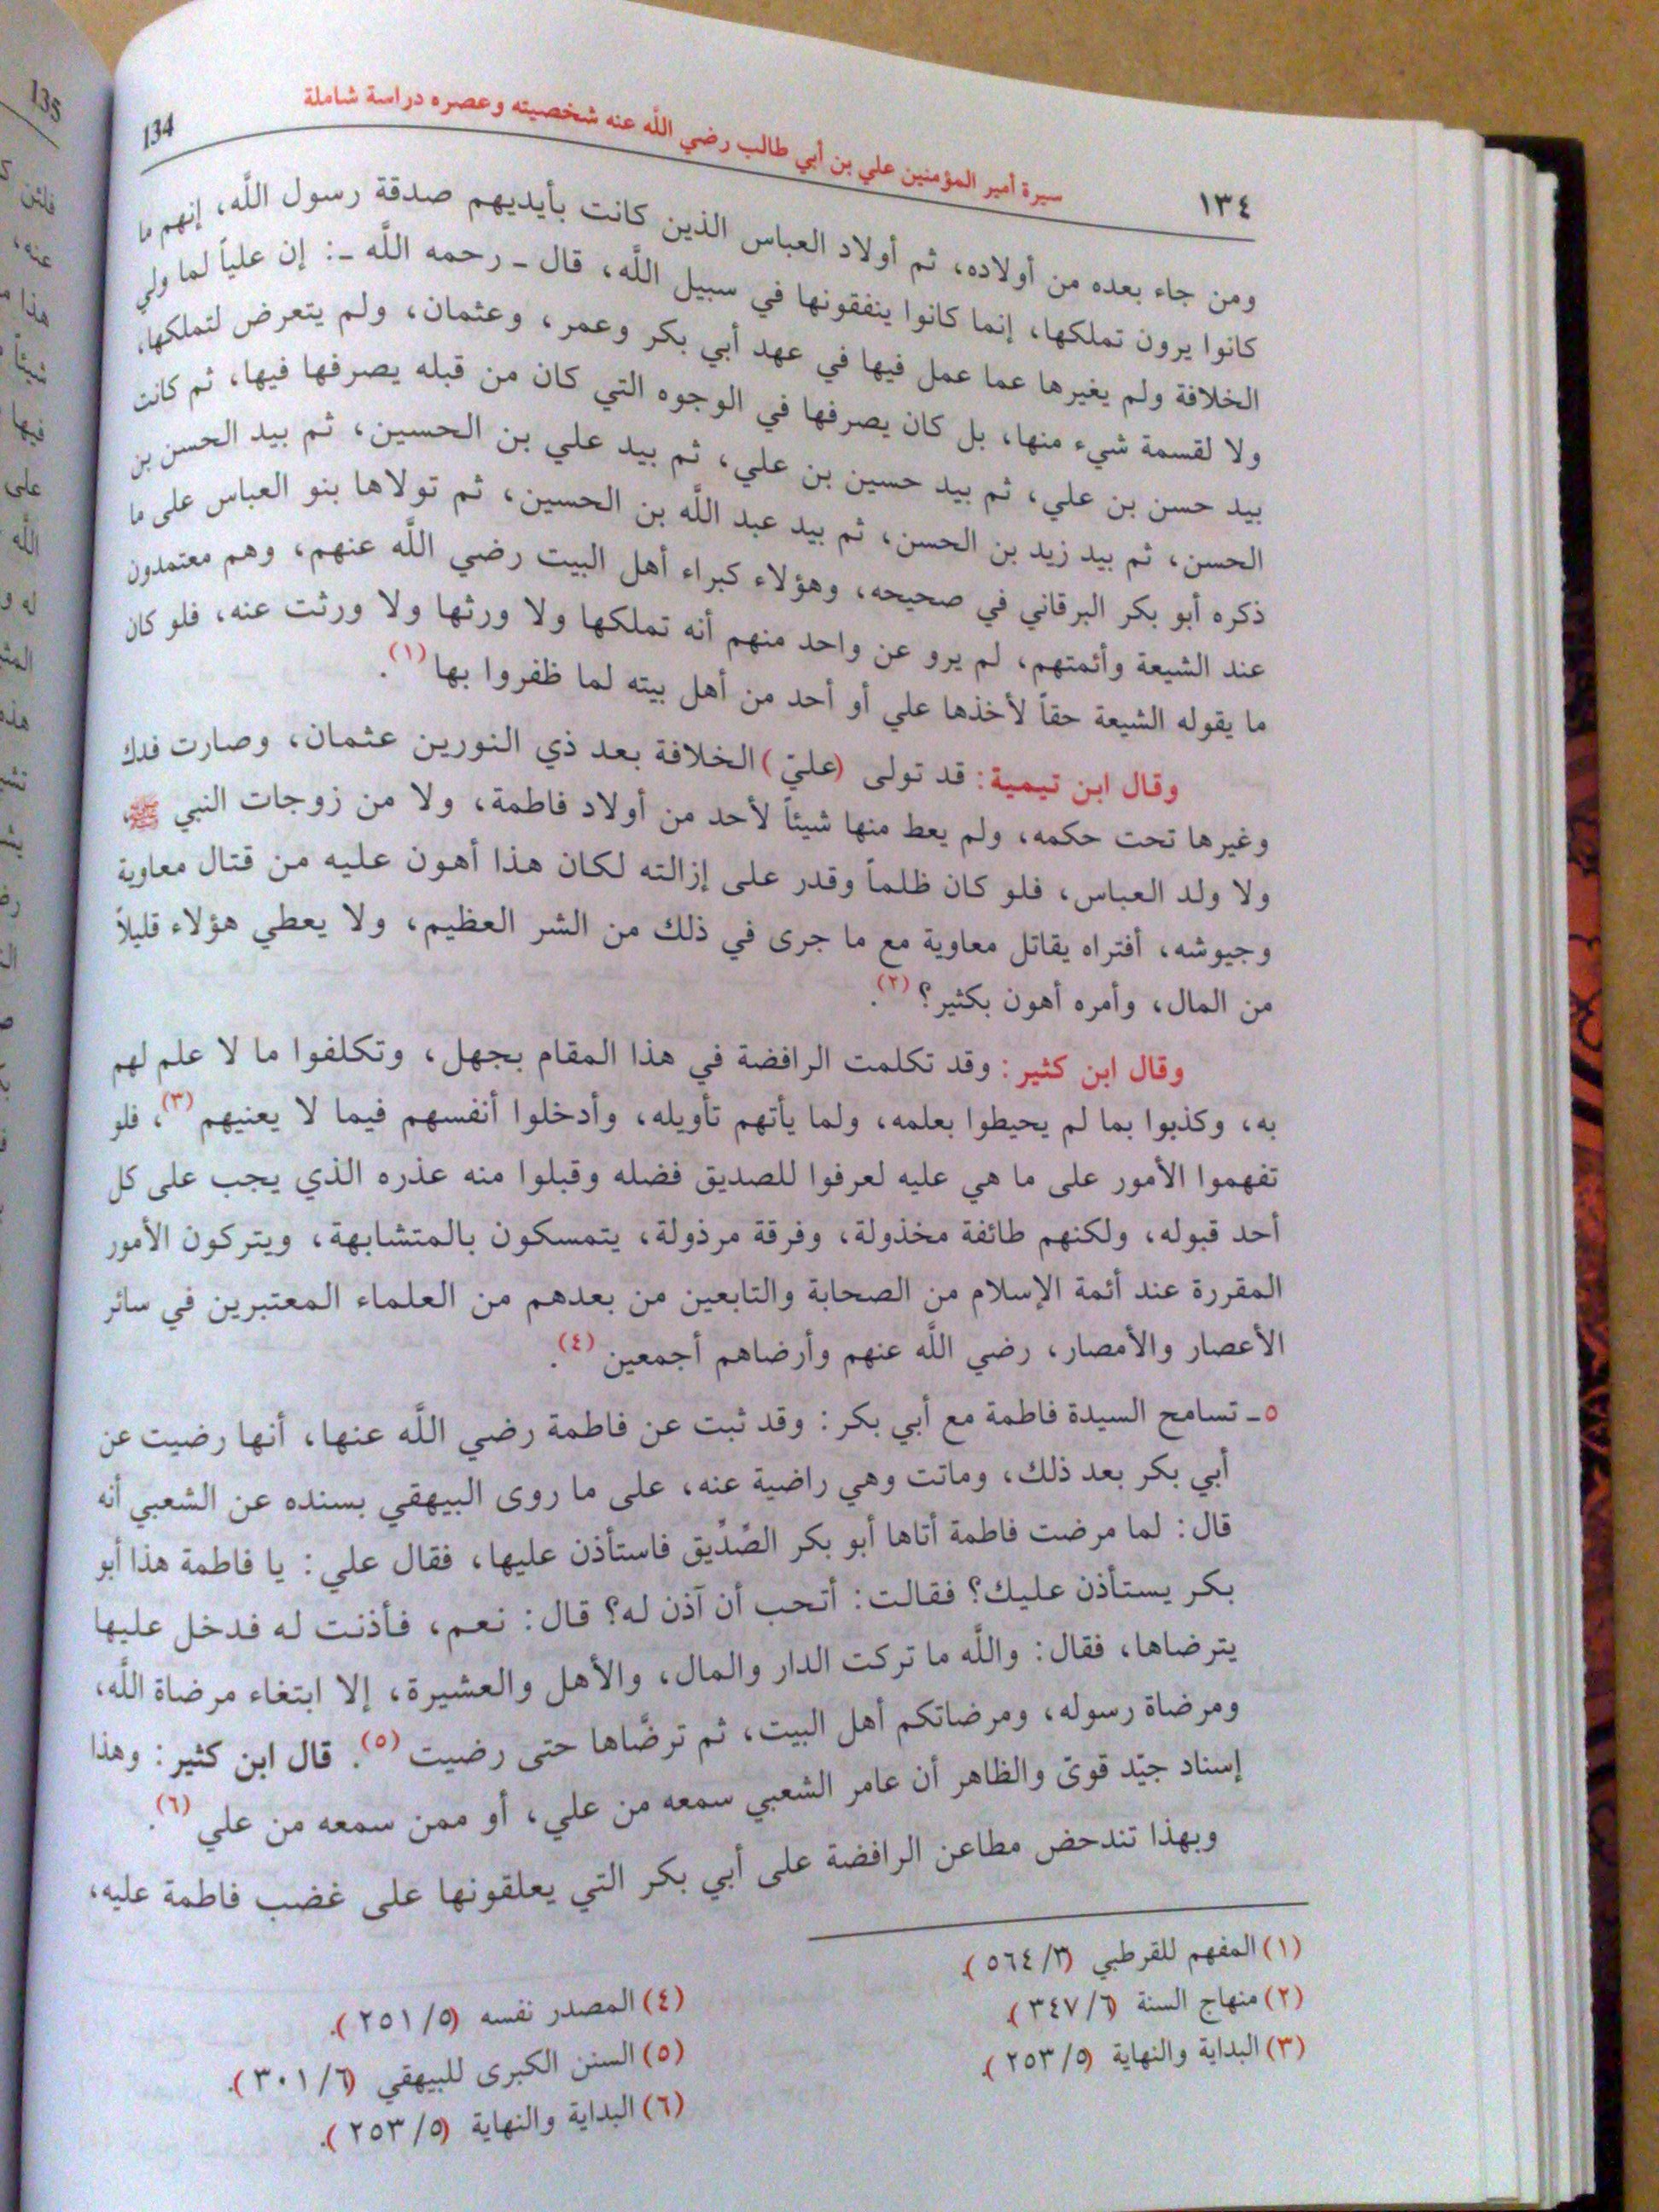 سيرة أمير المؤمنين علي بن أبي طالب رضي اللّه عنه شخصيته وعصره دراسة شاملة
١٣٤
134
ومن جاء بعده من أولاده، ثم أولاد العباس الذين كانت بأيديهم صدقة رسول اللّه، إنهم ما
كانوا يرون تملكها، إنما كانوا ينفقونها في سبيل اللّه، قال ـ رحمه اللّه ـ: إن علياً لما ولي
الخلافة ولم يغيرها عما عمل فيها في عهد أبي بكر وعمر، وعثمان، ولم يتعرض لتملكها،
ولا لقسمة شيء منها، بل كان يصرفها في الوجوه التي كان من قبله يصرفها فيها، ثم كانت
بيد حسن بن علي، ثم بيد حسين بن علي، ثم بيد علي بن الحسين، ثم بيد الحسن بن
الحسن، ثم بيد زيد بن الحسن، ثم بيد عبد اللّه بن الحسين، ثم تولاها بنو العباس على ما
ذكره أبو بكر البرقاني في صحيحه، وهؤلاء كبراء أهل البيت رضي اللّه عنهم، وهم معتمدون
عند الشيعة وأئمتهم، لم يرو عن واحد منهم أنه تملكها ولا ورثها ولا ورثت عنه، فلو كان
ما يقوله الشيعة حقاً لأخذها علي أو أحد من أهل بيته لما ظفروا بها (١).
وقال ابن تيمية: قد تولى (عليّ) الخلافة بعد ذي النورين عثمان، وصارت فدك
وغيرها تحت حكمه، ولم يعط منها شيئاً لأحد من أولاد فاطمة، ولا من زوجات النبي ﷺ،
ولا ولد العباس، فلو كان ظلماً وقدر على إزالته لكان هذا أهون عليه من قتال معاوية
وجيوشه، أفتراه يقاتل معاوية مع ما جرى في ذلك من الشر العظيم، ولا يعطي هؤلاء قليلاً
من المال، وأمره أهون بكثير؟ (٢).
وقال ابن كثير: وقد تكلمت الرافضة في هذا المقام بجهل، وتكلفوا ما لا علم لهم
به، وكذبوا بما لم يحيطوا بعلمه، ولما يأتهم تأويله، وأدخلوا أنفسهم فيما لا يعنيهم (٣)، فلو
تفهموا الأمور على ما هي عليه لعرفوا للصديق فضله وقبلوا منه عذره الذي يجب على كل
أحد قبوله، ولكنهم طائفة مخذولة، وفرقة مرذولة، يتمسكون بالمتشابهة، ويتركون الأمور
المقررة عند أئمة الإسلام من الصحابة والتابعين من بعدهم من العلماء المعتبرين في سائر
الأعصار والأمصار، رضي اللّه عنهم وأرضاهم أجمعين (٤).
٥ـ تسامح السيدة فاطمة مع أبي بكر: وقد ثبت عن فاطمة رضي اللّه عنها، أنها رضيت عن
أبي بكر بعد ذلك، وماتت وهي راضية عنه، على ما روى البيهقي بسنده عن الشعبي أنه
قال: لما مرضت فاطمة أتاها أبو بكر الصِّدِّيق فاستأذن عليها، فقال علي: يا فاطمة هذا أبو
بكر يستأذن عليك؟ فقالت: أتحب أن آذن له؟ قال: نعم، فأذنت له فدخل عليها
يترضاها، فقال: واللّه ما تركت الدار والمال، والأهل والعشيرة، إلا ابتغاء مرضاة اللّه،
ومرضاة رسوله، ومرضاتكم أهل البيت، ثم ترضَّاها حتى رضيت (٥). قال ابن كثير: وهذا
إسناد جيّد قويّ والظاهر أن عامر الشعبي سمعه من علي، أو ممن سمعه من علي (٦).
وبهذا تندحض مطاعن الرافضة على أبي بكر التي يعلقونها على غضب فاطمة عليه،
(١) المفهم للقرطبي (٣/ ٥٦٤).
(٢) منهاج السنة (٦/ ٣٤٧).
(٣) البداية والنهاية (٥/ ٢٥٣).
(٤) المصدر نفسه (٥/ ٢٥١).
(٥) السنن الكبرى للبيهقي (٦/ ٣٠١).
(٦) البداية والنهاية (٥/ ٢٥٣).
135